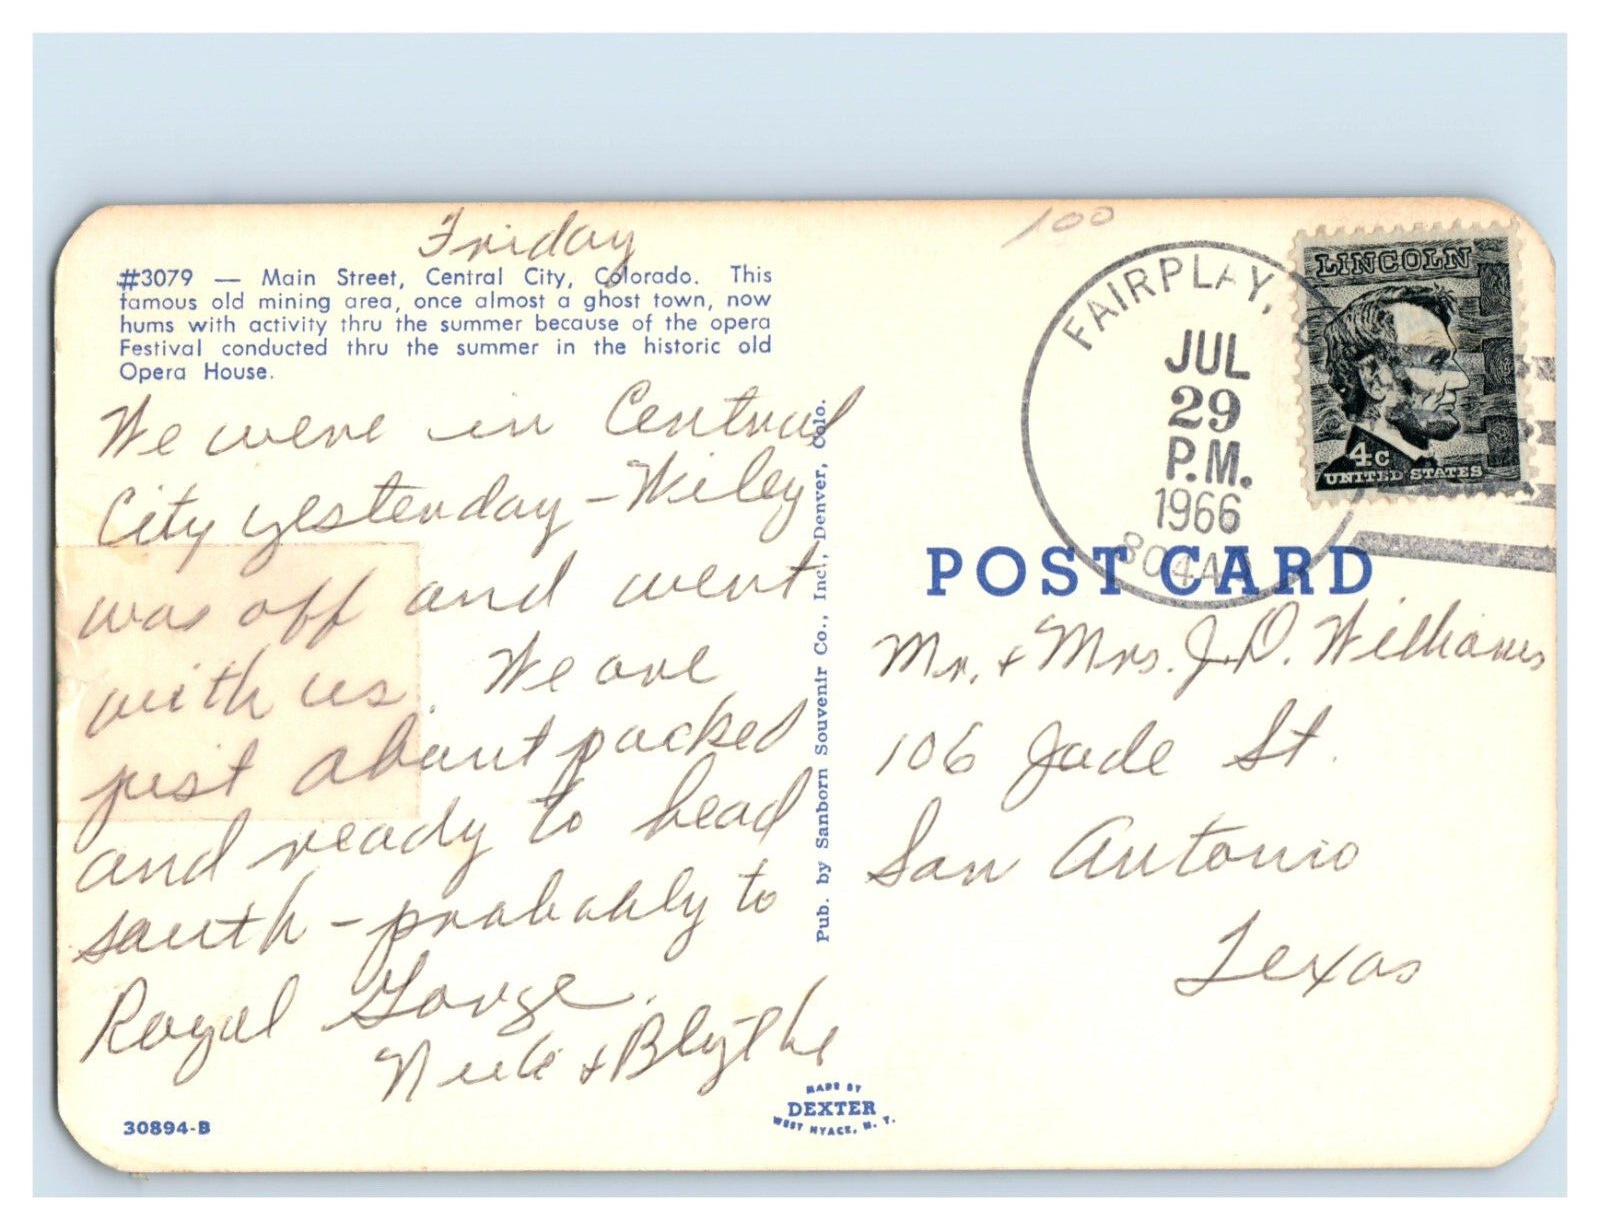 Friday
#3079 — Main Street, Central City, Colorado. This
famous old mining area, once almost a ghost town, now
hums with activity thru the summer because of the opera
Festival conducted thru the summer in the historic old
Opera House.
We were in Central
City yesterday - Wiley
was off and went
with us. We are
just about packed
and ready to head
south - probably to
Royal Gorge.
& Blythe
30894-B
Pub. by Sanborn Souvenir Co., Inc., Denver, Colo.
MADE BY
DEXTER
WEST NYACK, N. Y.
100
FAIRPLAY,
JUL
29
P.M.
1966
LINCOLN
4c
UNITED STATES
POST CARD
Mr. & Mrs. J.D. Williams
106 Jade St.
San Antonio
Texas